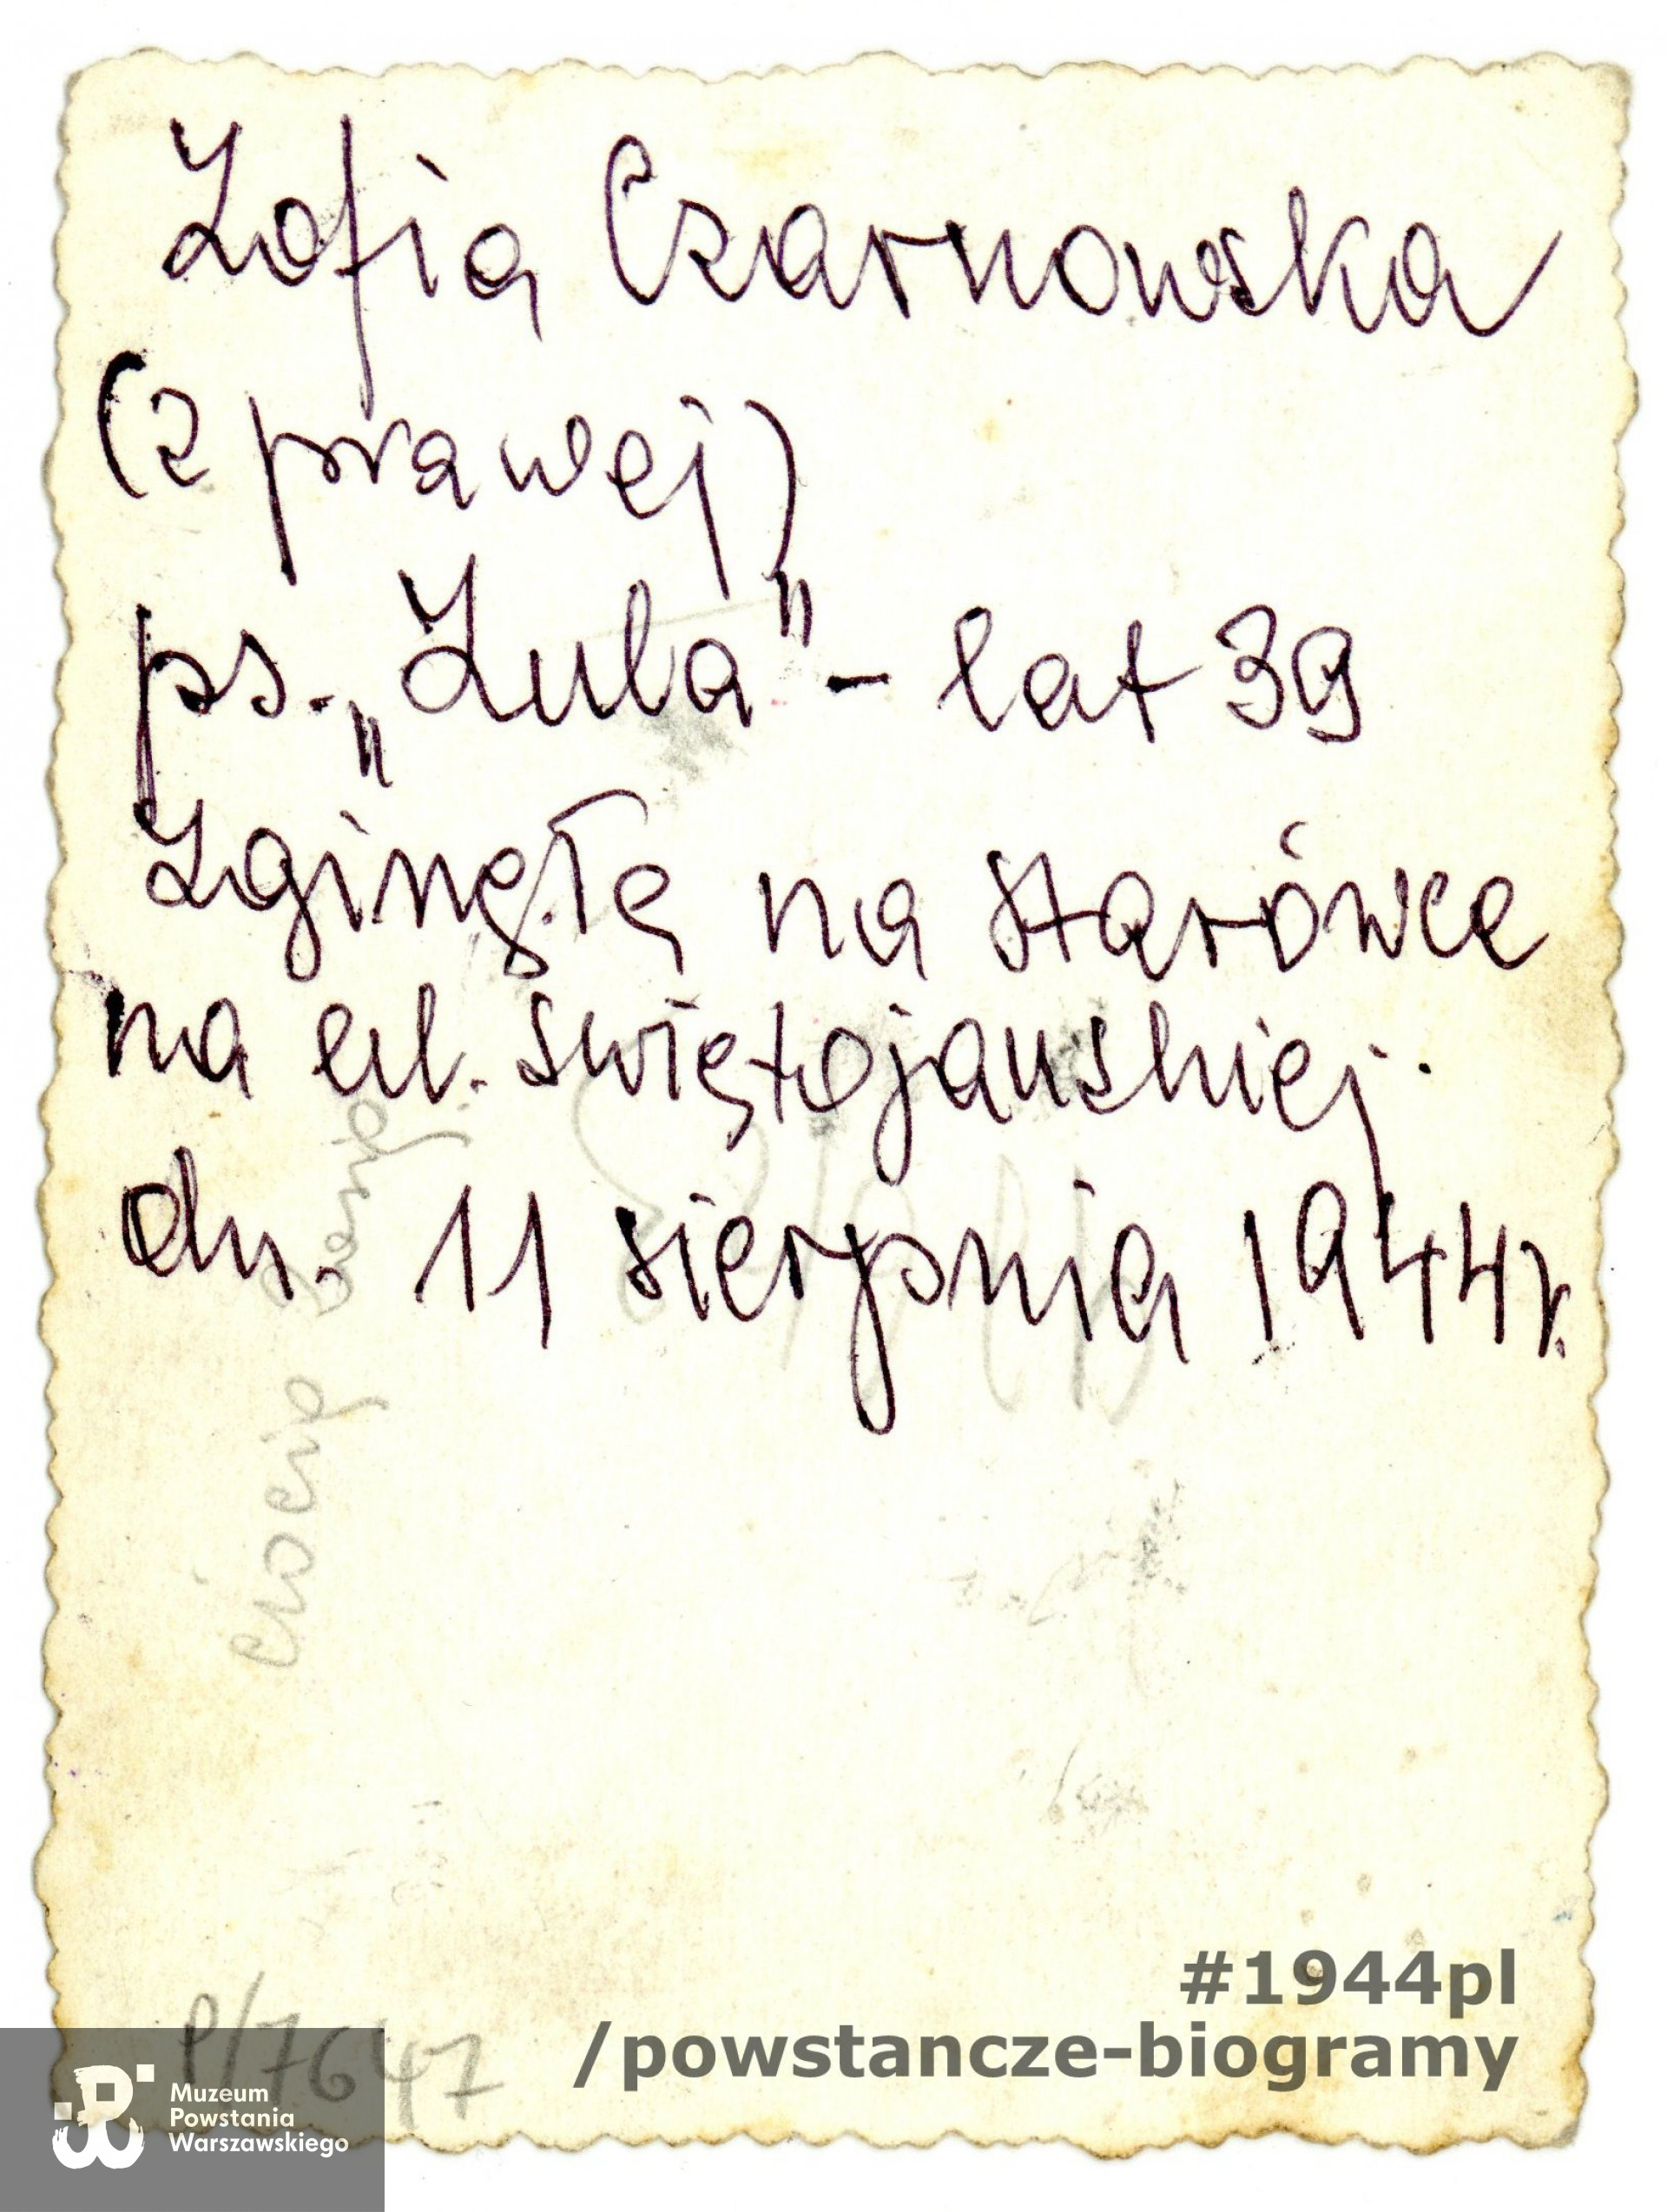 Zofia Czarnowska
(z prawej)
ps. „Zula” – lat 39
Zginęła na starówce
na ul. świętojańskiej.
dn. 11 sierpnia 1944r.
ciocia
P/7647
#1944pl
/powstancze-biogramy
Muzeum
Powstania
Warszawskiego